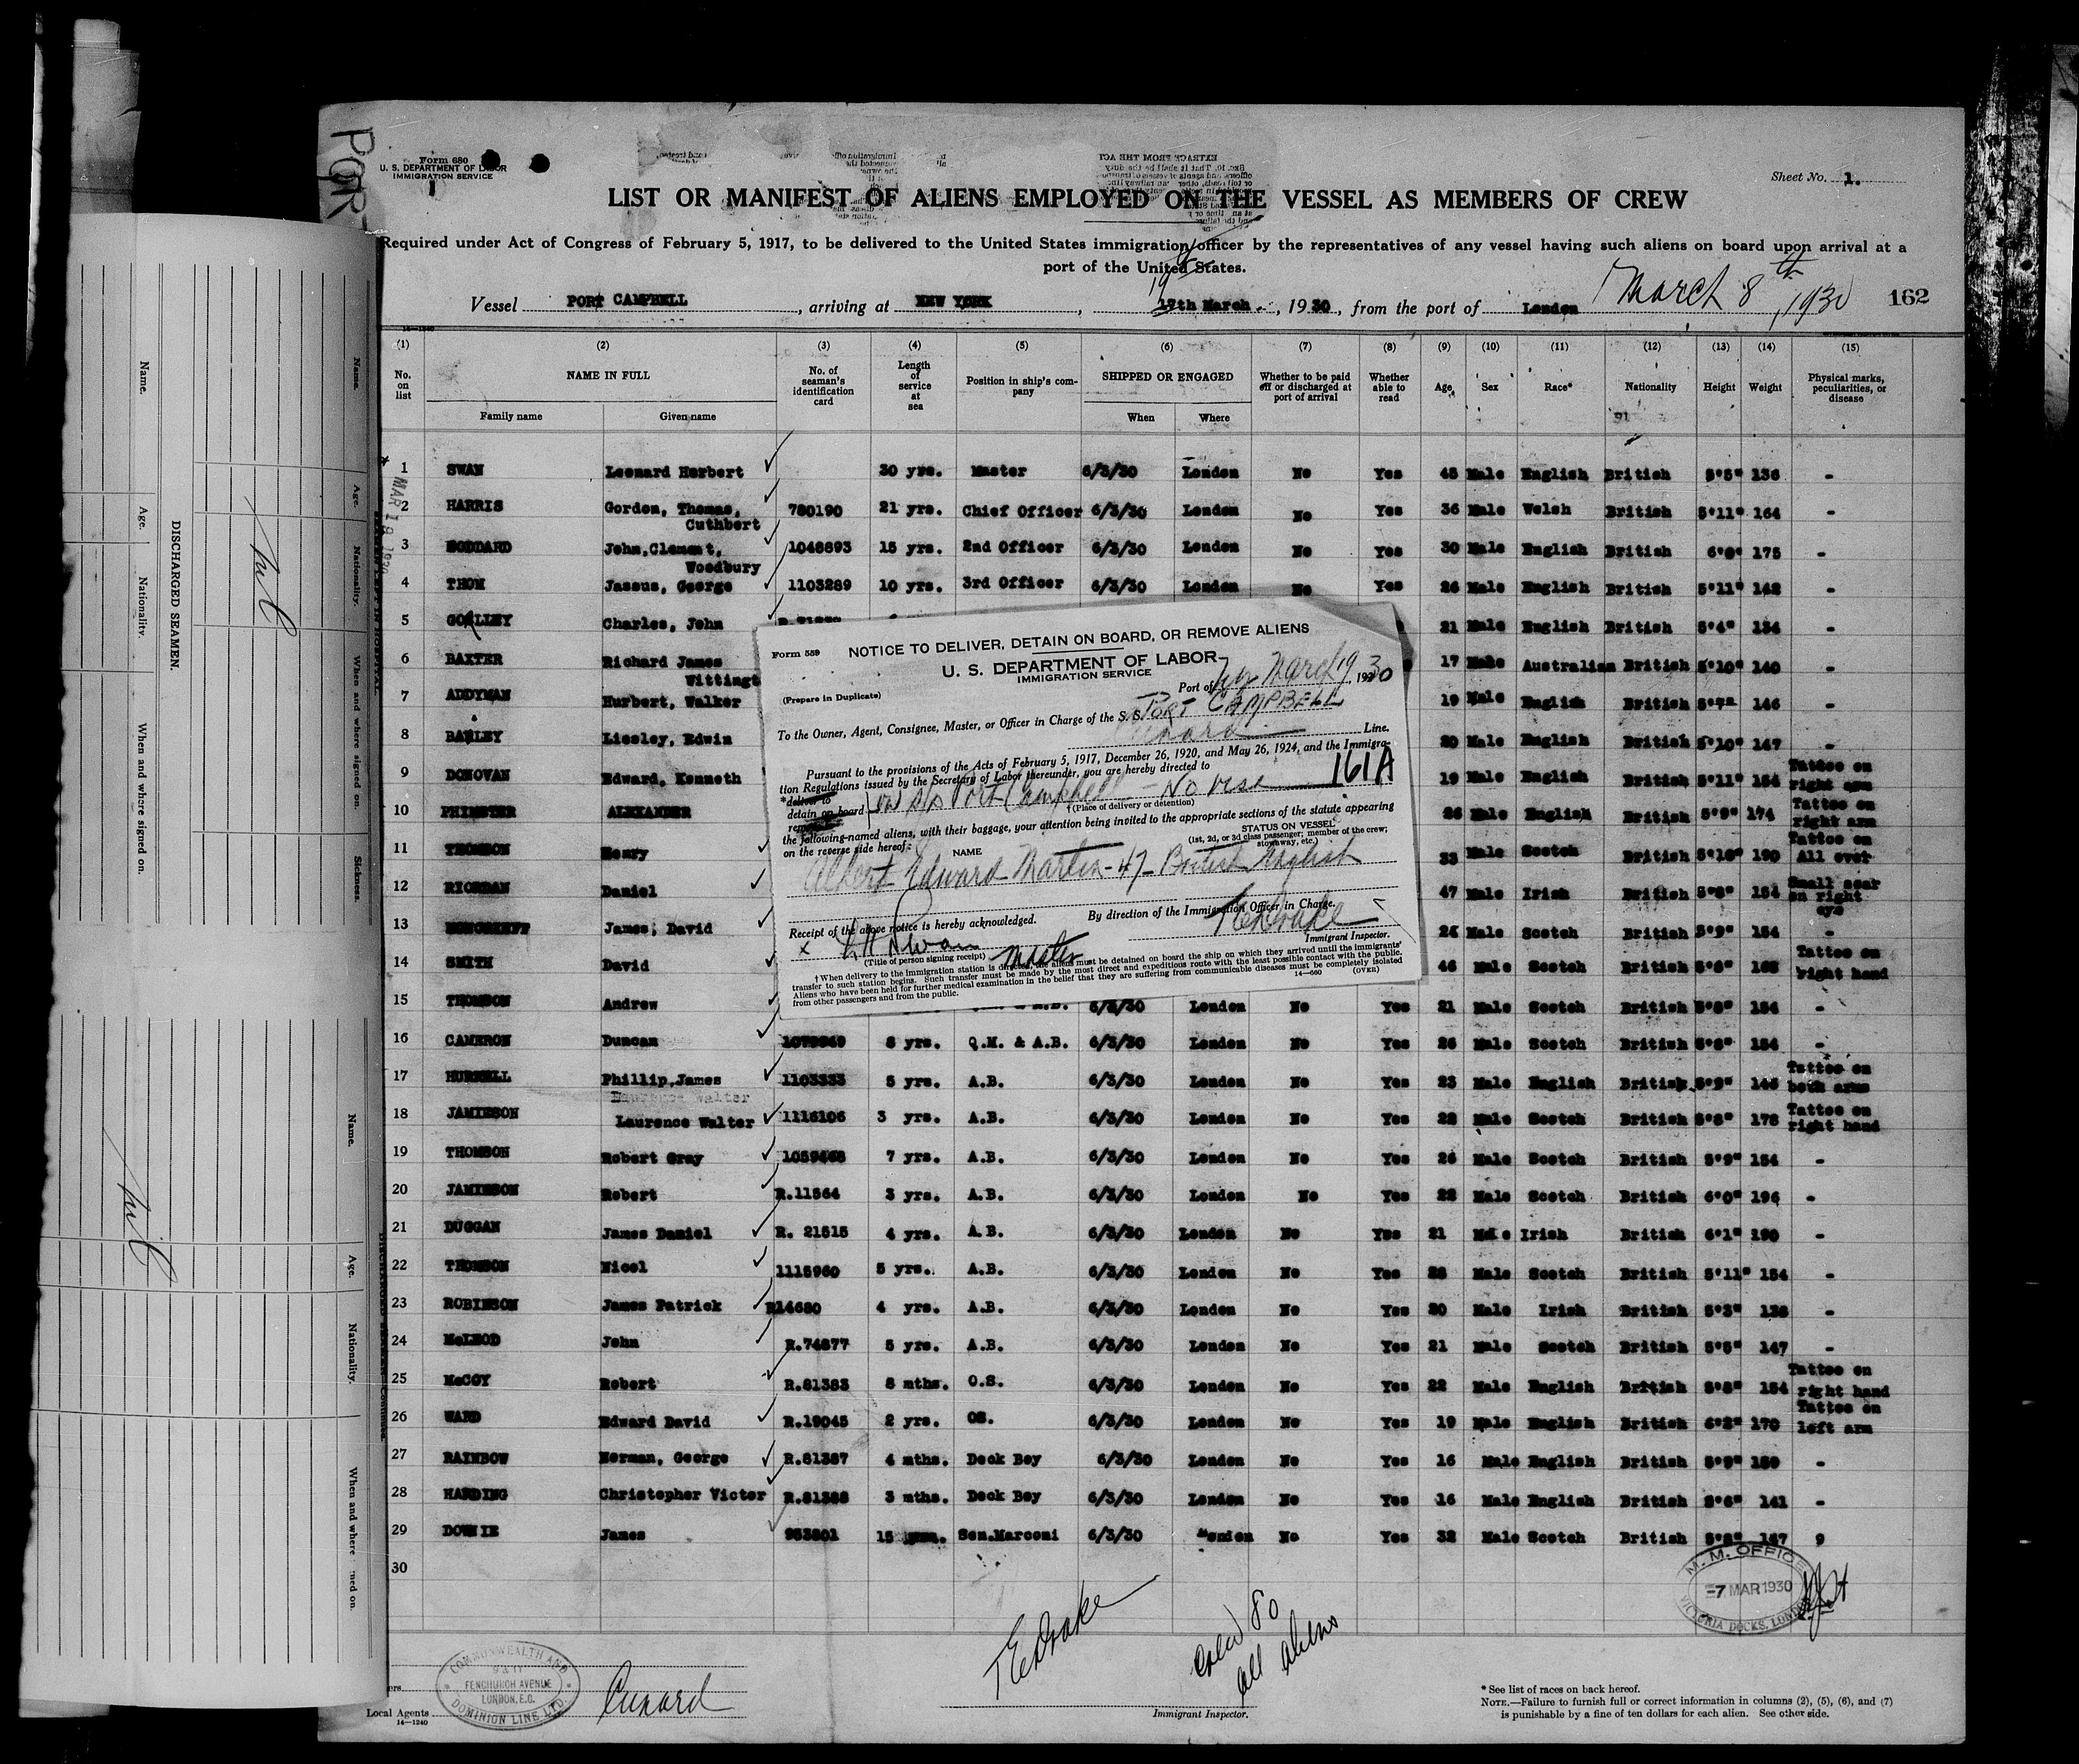 PORT
Form 680
U. S. DEPARTMENT OF LABOR
IMMIGRATION SERVICE
Sheet No. 1.
LIST OR MANIFEST OF ALIENS EMPLOYED ON THE VESSEL AS MEMBERS OF CREW
Required under Act of Congress of February 5, 1917, to be delivered to the United States immigration officer by the representatives of any vessel having such aliens on board upon arrival at a
port of the United States.
19
Vessel PORT CAMPBELL, arriving at NEW YORK, 17th March, 1930, from the port of London March 8th, 1930 162
14—1240
(1) (2) (3) (4) (5) (6) (7) (8) (9) (10) (11) (12) (13) (14) (15)
No. on list NAME IN FULL Family name Given name No. of seaman's identification card Length of service at sea Position in ship's company SHIPPED OR ENGAGED When Where Whether to be paid off or discharged at port of arrival Whether able to read Age Sex Race* Nationality Height Weight Physical marks, peculiarities, or disease
MAR 18 1930
1 SWAN Leonard Herbert 30 yrs. Master 6/3/30 London No Yes 45 Male English British 5'5" 136 -
2 HARRIS Gordon, Thomas, Cuthbert 780190 21 yrs. Chief Officer 6/3/30 London No Yes 36 Male Welsh British 5'11" 164 -
3 GODDARD John, Clement, Woodbury 1048893 15 yrs. 2nd Officer 6/3/30 London No Yes 30 Male English British 6'0" 175 -
4 THOM Jassus, George 1103289 10 yrs. 3rd Officer 6/3/30 London No Yes 26 Male English British 5'11" 142 -
5 Charles, John 21 Male English British 5'4" 134 -
6 BAXTER Richard James Wittingt 17 Male Australian British 5'10" 140 -
7 ADDYMAN Hurbert, Walker 19 Male English British 146 -
8 Liesley, Edwin 20 Male English British 5'10" 147 -
9 DONOVAN Edward, Kenneth 19 Male English British 5'11" 154 Tattoo on right arm
10 PHIMISTER ALEXANDER 26 Male English British 5'9" 174 Tattoo on right arm
11 THOMSON Henry 33 Male Scotch British 5'10" 190 Tattoo on All over
12 RIORDAN Daniel 47 Male Irish British 5'8" 154 Small scar on right eye
13 MONCRIEFF James, David Male Scotch British 5'9" 154 -
14 SMITH David 46 Male Scotch British 5'6" 168 Tattoo on right hand
15 THOMSON Andrew 6/3/30 London No Yes 21 Male Scotch British 5'8" 154 -
16 CAMERON Duncan 6 yrs. Q.M. & A.B. 6/3/30 London No Yes 26 Male Scotch British 5'8" 154 -
17 Phillip, James 1103333 5 yrs. A.B. 6/3/30 London No Yes 23 Male English British 5'9" Tattoo on both arms
18 JAMIESON Laurence Walter 1116106 3 yrs. A.B. 6/3/30 London No Yes 22 Male Scotch British 5'8" 178 Tattoo on right hand
19 THOMSON Robert Gray 1059468 7 yrs. A.B. 6/3/30 London No Yes 26 Male Scotch British 5'9" 154 -
20 JAMIESON Robert R.11564 3 yrs. A.B. 6/3/30 London No Yes 22 Male Scotch British 6'0" 196 -
21 DUGGAN James Daniel R. 21515 4 yrs. A.B. 6/3/30 London No Yes 21 Male Irish British 6'1" 190 -
22 THOMSON Nicol 1115960 5 yrs. A.B. 6/3/30 London No Yes 28 Male Scotch British 5'11" 154 -
23 ROBINSON James Patrick R14680 4 yrs. A.B. 6/3/30 London No Yes 20 Male Irish British 5'3" 138 -
24 McLEOD John R.74877 5 yrs. A.B. 6/3/30 London No Yes 21 Male Scotch British 5'5" 147 -
25 McCOY Robert R.81383 8 mths. O.S. 6/3/30 London No Yes 22 Male English British 5'8" 154 Tattoo on right hand
26 WARD Edward David R.19045 2 yrs. OS. 6/3/30 London No Yes 19 Male English British 6'2" 170 Tattoo on left arm
27 RAINBOW Norman, George R.81387 4 mths. Deck Boy 6/3/30 London No Yes 16 Male English British 5'9" 150 -
28 HARDING Christopher Victor R.81388 3 mths. Deck Boy 6/3/30 London No Yes 16 Male English British 5'6" 141 -
29 DOWNIE James 953801 15 yrs. Sen.Marconi 6/3/30 London No Yes 32 Male Scotch British 5'8" 147 9
30
Form 559
NOTICE TO DELIVER, DETAIN ON BOARD, OR REMOVE ALIENS
U. S. DEPARTMENT OF LABOR
IMMIGRATION SERVICE
(Prepare in Duplicate)
Port of Ny March 19 1930
To the Owner, Agent, Consignee, Master, or Officer in Charge of the S. S. PORT CAMPBELL
Cunard Line.
Pursuant to the provisions of the Acts of February 5, 1917, December 26, 1920, and May 26, 1924, and the Immigra-
tion Regulations issued by the Secretary of Labor thereunder, you are hereby directed to 161A
*deliver to
detain on board
remove
on s/s Port Campbell - No vise
†(Place of delivery or detention)
the following-named aliens, with their baggage, your attention being invited to the appropriate sections of the statute appearing
on the reverse side hereof:
NAME
STATUS ON VESSEL
(1st, 2d, or 3d class passenger; member of the crew; stowaway, etc.)
Albert Edward Martin - 47 - British English
By direction of the Immigration Officer in Charge.
Receipt of the above notice is hereby acknowledged.
x L H Swan
TEDrake
Immigrant Inspector.
(Title of person signing receipt) Master
†When delivery to the immigration station is directed, the aliens must be detained on board the ship on which they arrived until the immigrants'
transfer to such station begins. Such transfer must be made by the most direct and expeditious route with the least possible contact with the public.
Aliens who have been held for further medical examination in the belief that they are suffering from communicable diseases must be completely isolated
from other passengers and from the public.
14—680 (OVER)
M. M. OFFICE
7 MAR 1930
VICTORIA DOCKS, LONDON
TEDrake
Crew 80
all aliens
Immigrant Inspector.
COMMONWEALTH AND
FENCHURCH AVENUE
LONDON, E.C.
DOMINION LINE LTD.
Cunard
Local Agents
14—1240
* See list of races on back hereof.
NOTE.—Failure to furnish full or correct information in columns (2), (5), (6), and (7)
is punishable by a fine of ten dollars for each alien. See other side.
DISCHARGED SEAMEN.
Name. Age. Nationality. When and where signed on.
Name. Age. Nationality. When and where signed on. Sickness.
Nil
Name. Age. Nationality.
Nil